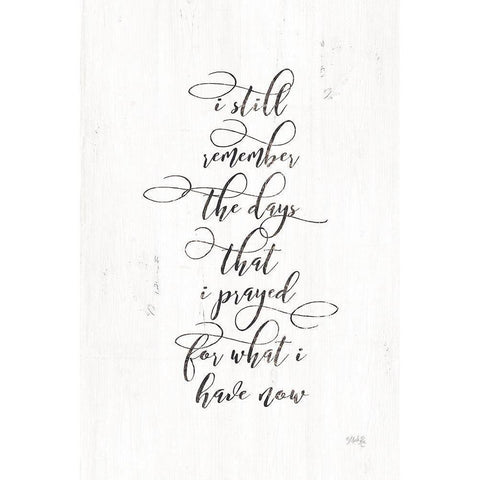 i still
remember
the days
that
i prayed
for what i
have now